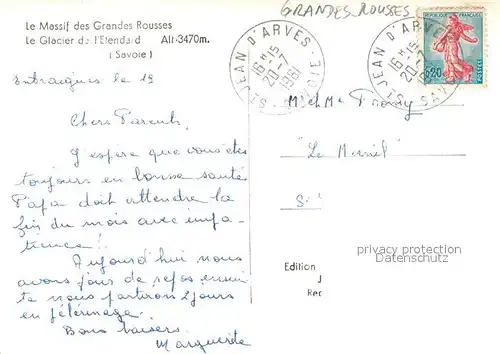 GRANDES ROUSSES
Le Massif des Grandes Rousses
Le Glacier de l'Etendard Alt. 3470m.
(Savoie)
ST JEAN D'ARVES SAVOIE
16H15
20-7
1961
ST JEAN D'ARVES SAVOIE
16H15
20-7
REPUBLIQUE FRANÇAISE
0,20
POSTES
Entraigues le 19
Chers Parents,
J'espère que vous êtes
toujours en bonne santé
Papa doit attendre la
fin du mois avec impa-
tience !!
Aujourd'hui nous
avons jour de repos ensui
te nous partirons 2 jours
en pélerinage.
Bons baisers.
Marguerite
Mr et Mme
"Le
S
Edition
J
Re
privacy protection
Datenschutz